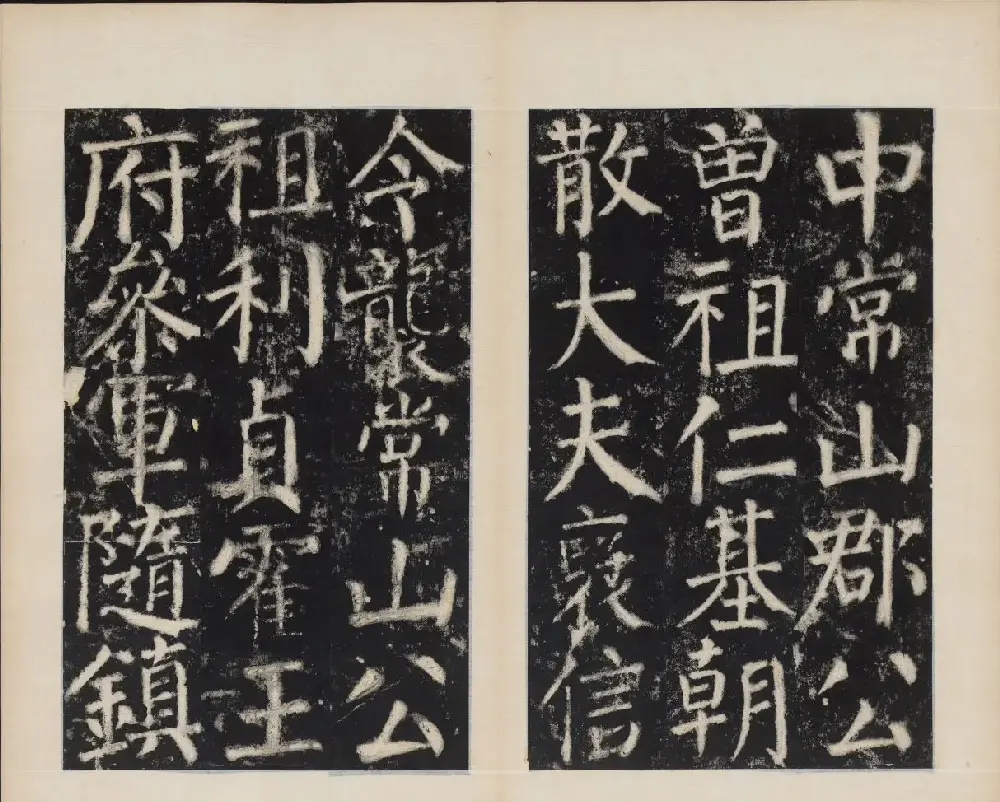 中常山郡公
曽祖仁基朝
散大夫襃信
令襲常山公
祖利貞霍王
府參軍隨鎮